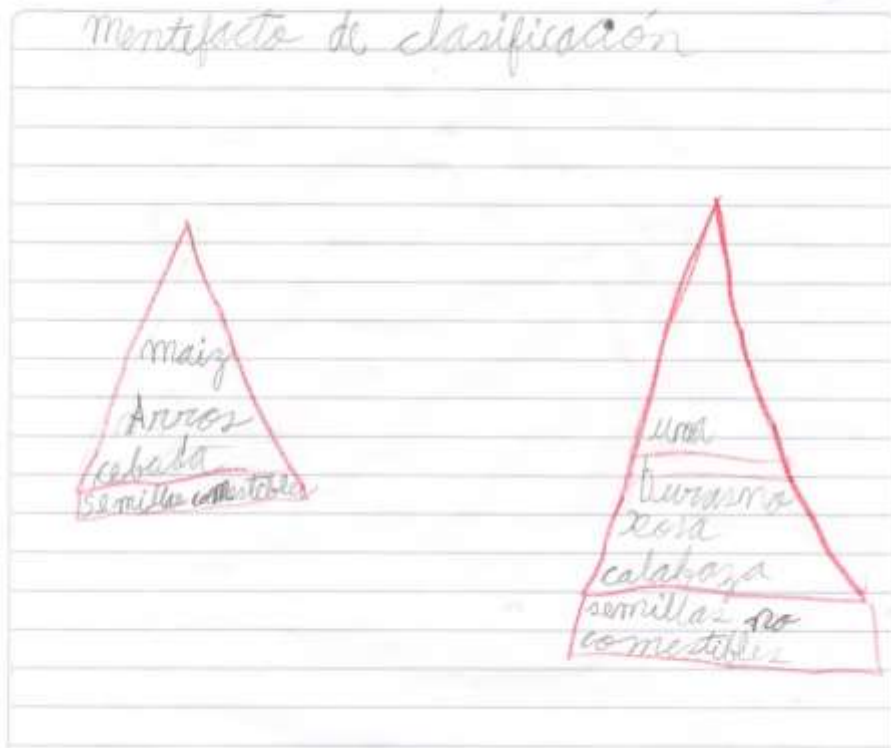 mentefacto de clasificación
maiz
Arros
cebada
semillas comestibles
uva
Durasno
rosa
calabaza
semillas no
comestibles